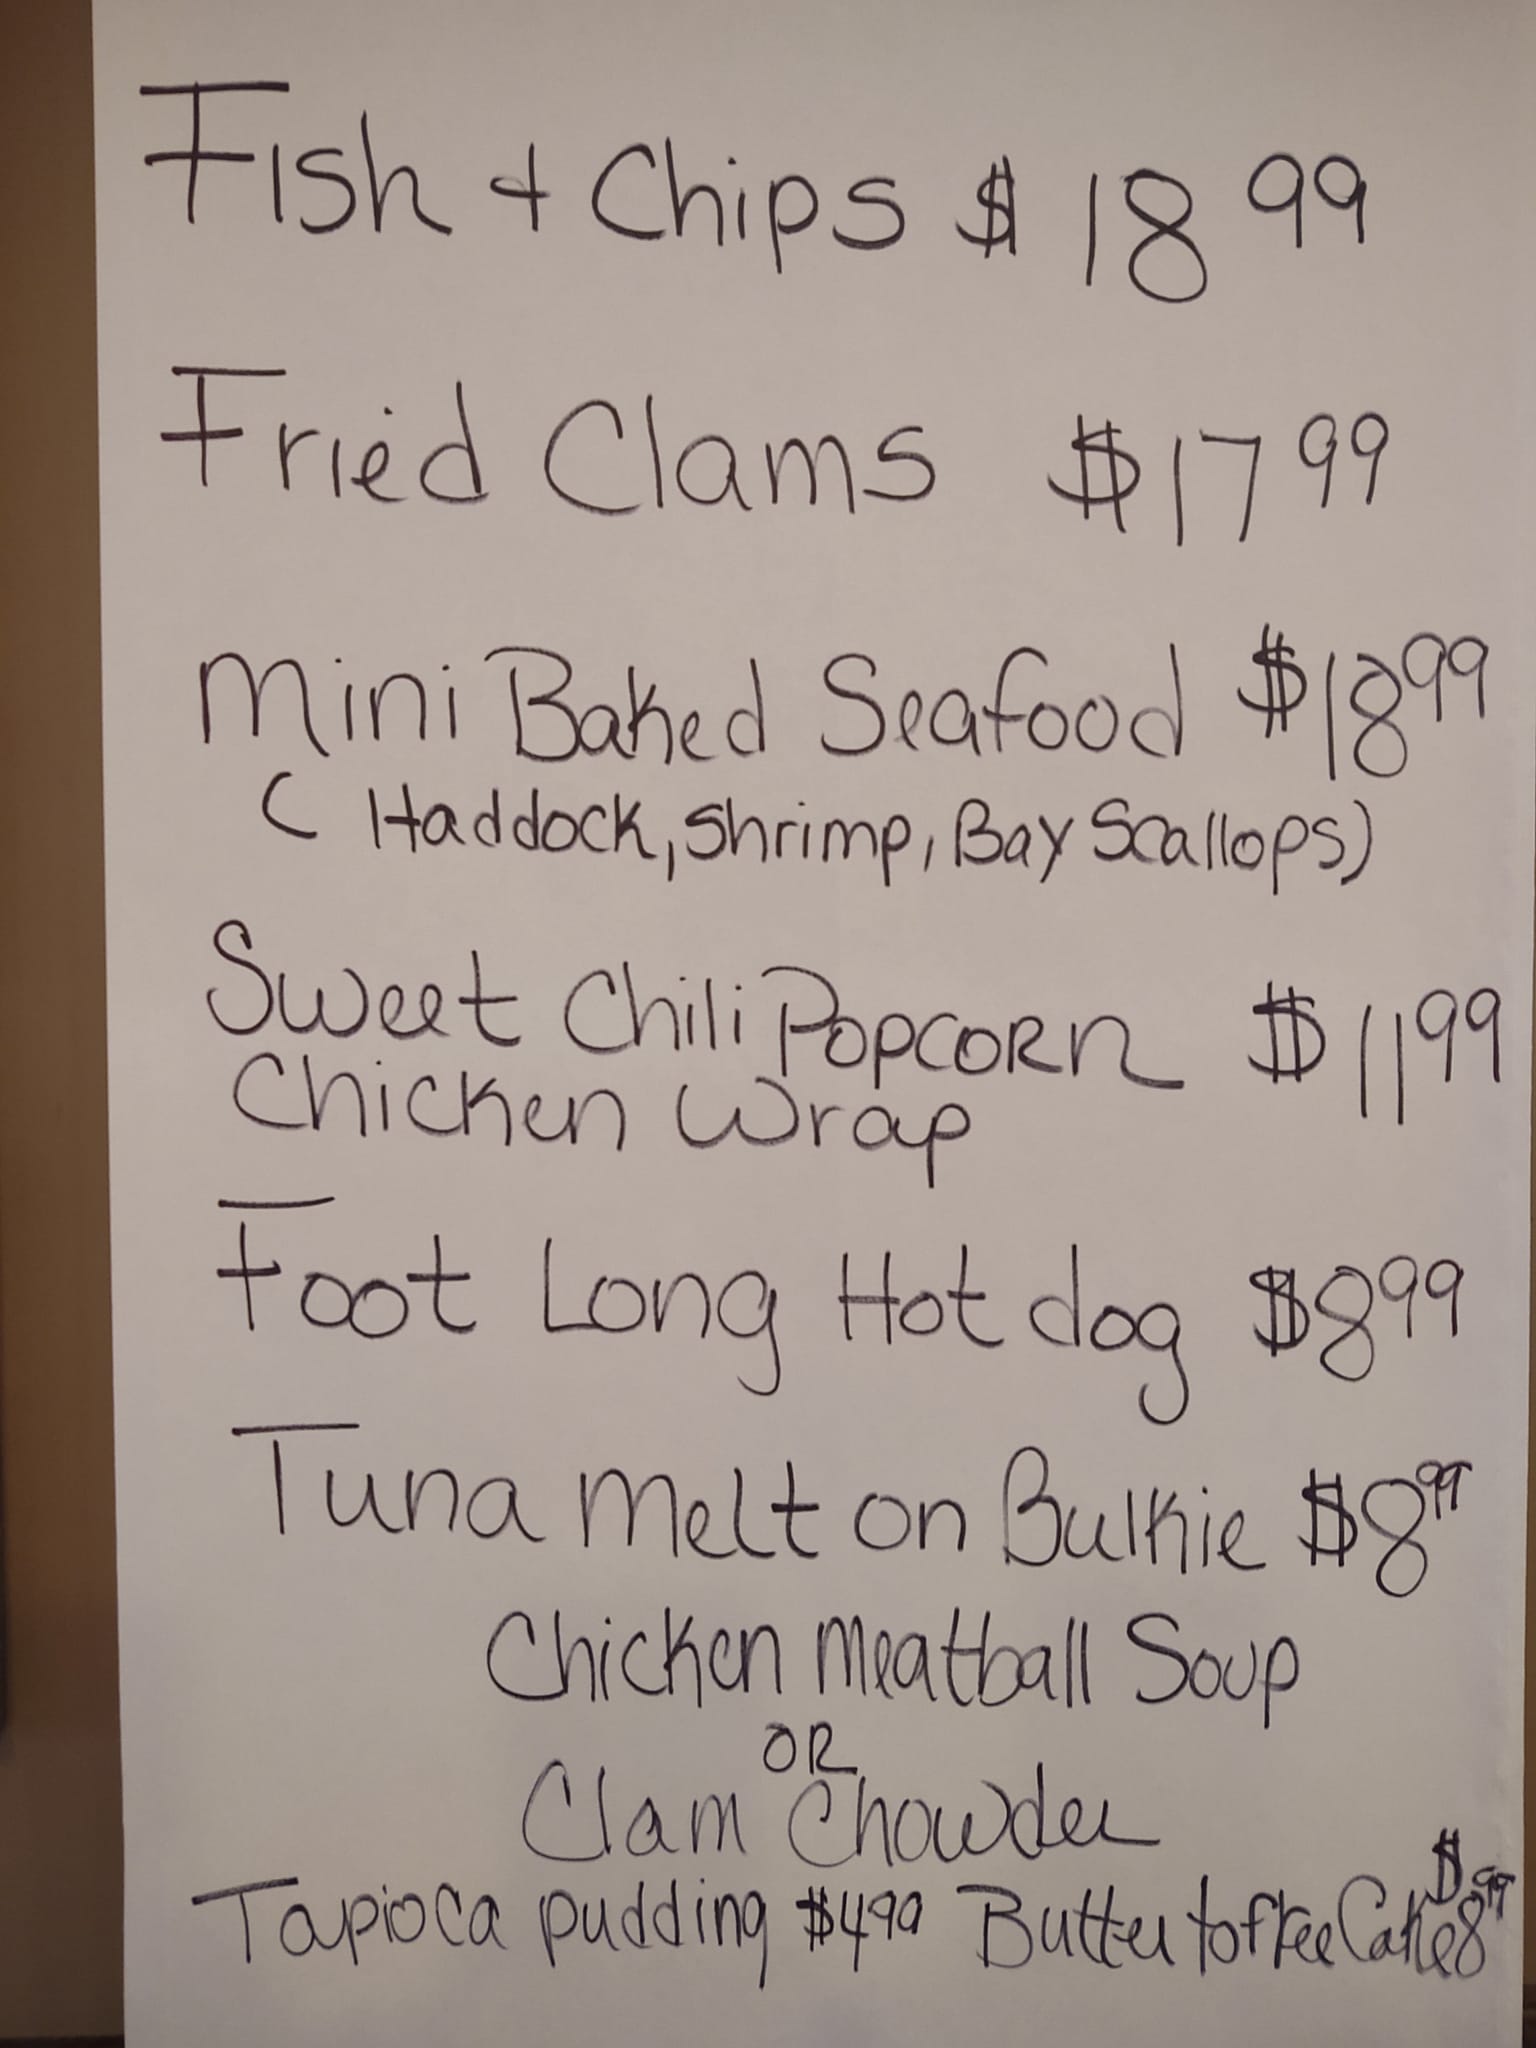 Fish + Chips $ 18 99
Fried Clams $17 99
Mini Baked Seafood $18 99
( Haddock, Shrimp, Bay Scallops)
Sweet Chili Popcorn $11 99
Chicken Wrap
Foot Long Hot dog $8 99
Tuna Melt on Bulkie $8 99
Chicken Meatball Soup
OR
Clam Chowder
Tapioca pudding $4 99 Butter toffee Cake $8 99